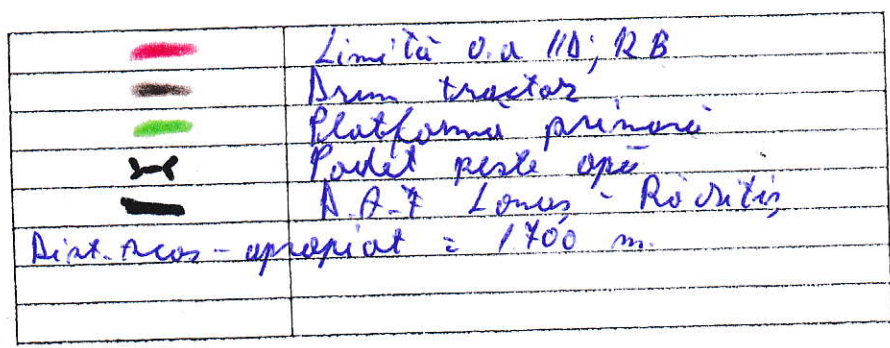 Limită u.a 11D; 12B
Drum tractor
Platformă primară
Podet peste apă
D.A.F Lomas -
Dist. scos - apropiat = 1700 m.